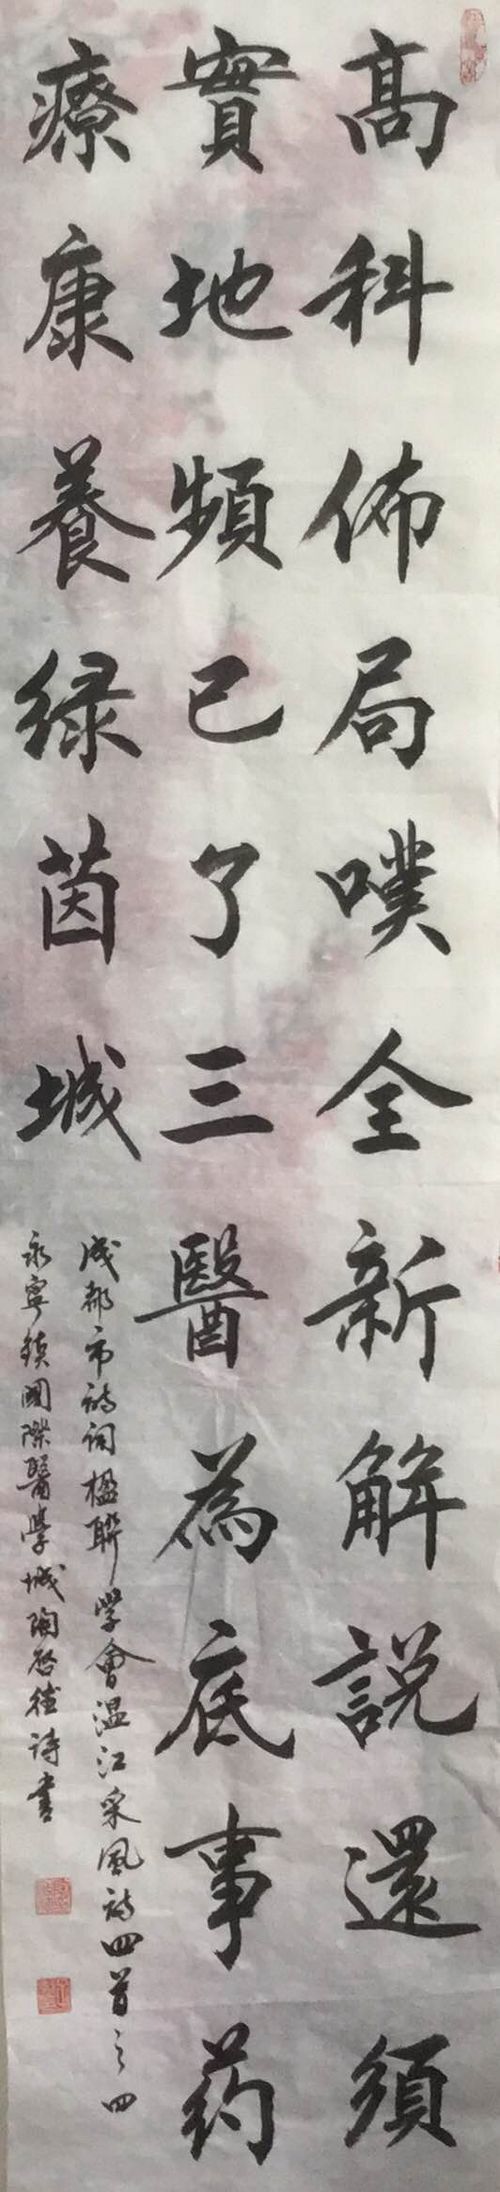 高科佈局噗全新解説還須
實地頻已了三醫為底事药
療康養緑茵城
成都市詩詞楹聯学會温江采風詩四首之四
永寧鎮國際醫學城陶啓德詩書